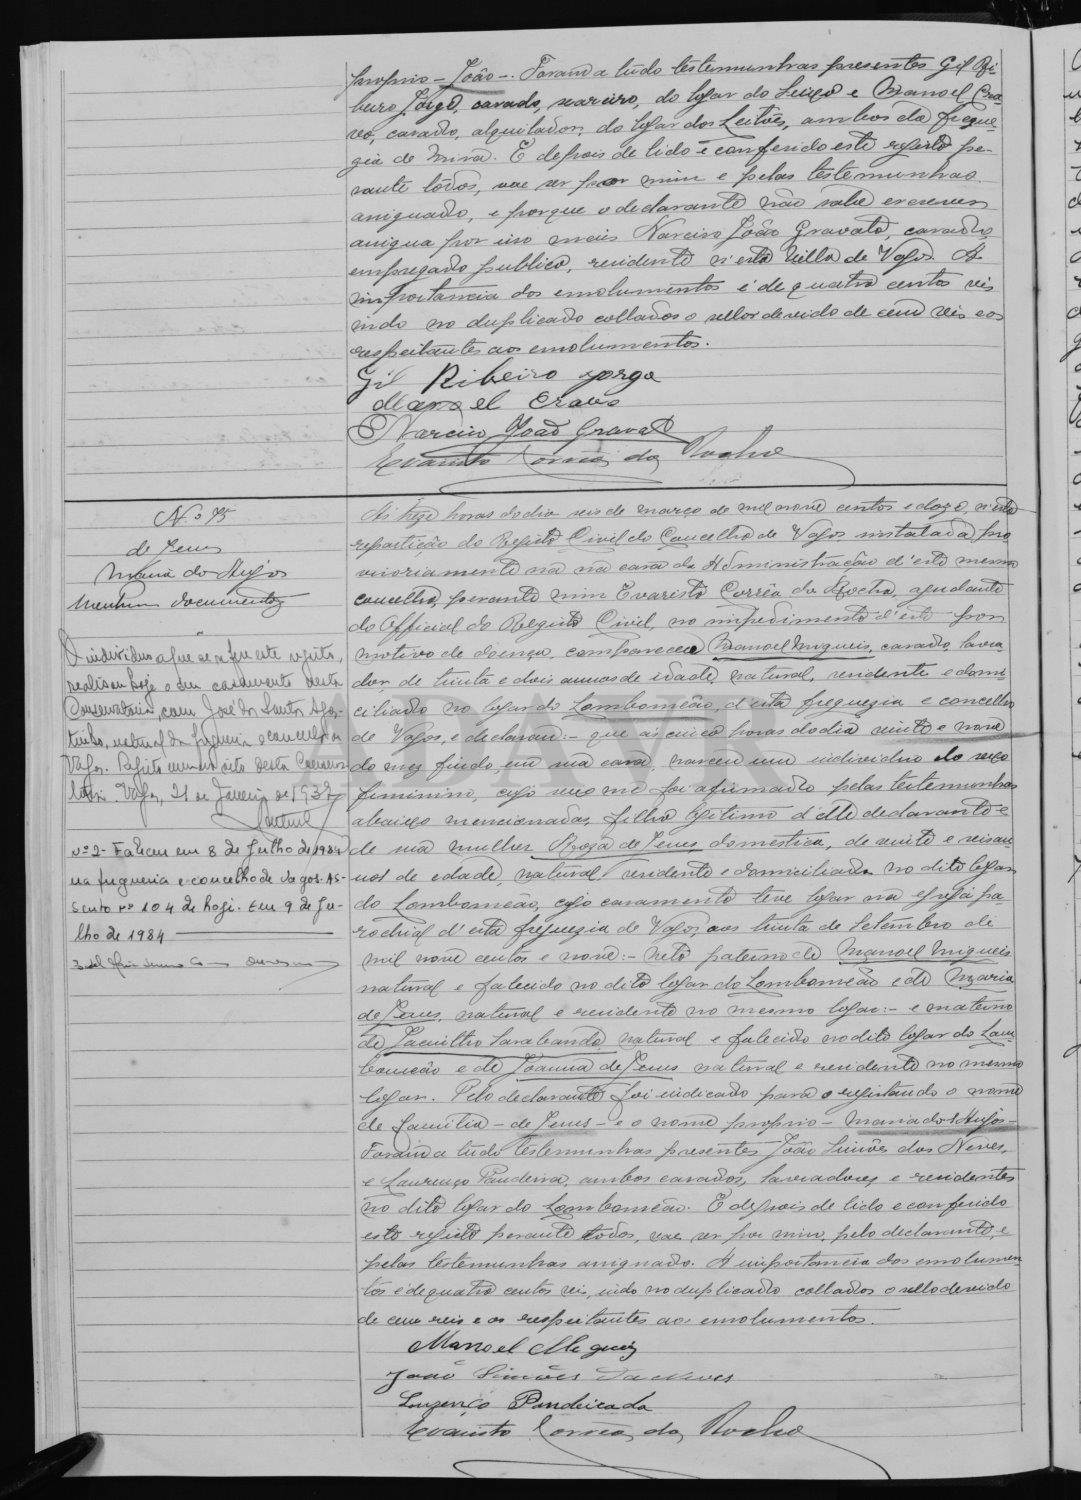 proprio - João -. Foram a tudo testemunhas presentes Gil Ri-
beiro Jorge, casado, marciro, do logar do Seixo e Manoel Cra-
vo, casado, alquilador, do logar dos Leitões, ambos da fregue-
zia de Mira. E depois de lido e conferido este registo pe-
rante todos, vae ser por mim e pelas testemunhas
assignado, e porque o declarante não sabe escrever
assigna por isso mais Narciso João Gravato, casado,
empregado publico, residente n'esta Villa de Vagos. A
importancia dos emolumentos é de quatro centos reis
indo no duplicado collados o sello devido de cem reis e os
respeitantes aos emolumentos.
Gil Ribeiro Jorge
Manoel Cravo
Narciso João Gravato
Evaristo Corrêa da Rocha
N.o 75
de Jesus
Maria dos Anjos
Nenhum documento
O individuo a que se refere este registo,
realisou hoje o seu casamento nesta
Conservatoria, com José dos Santos Agos-
tinho, natural da freguesia e concelho de
Vagos. Registo numero oito desta Conserva-
toria. Vagos, 21 de Janeiro de 1932
nº 2 - Faleceu em 8 de Julho de 1984
na freguesia e concelho de Vagos. As-
sento nº 104 de hoje. Em 9 de Ju-
lho de 1984
Ás treze horas do dia seis de março de mil nove centos e doze, n'esta
repartição do Registo Civil do Concelho de Vagos installada pro-
visoriamente na na casa da Administração d'este mesmo
concelho, perante mim Evaristo Corrêa da Rocha, ajudante
do Official do Registo Civil, no impedimento d'este por
motivo de doença, compareceu Manoel Migueis, casado, lavra-
dor, de trinta e dois annos de idade, natural, residente e domi-
ciliado no logar do Lombomeão, d'esta freguezia e concelho
de Vagos, e declarou: - que ás cinco horas do dia vinte e nove
do mez findo, em sua casa, nasceu um individuo do sexo
feminino, cujo sexo me foi afirmado pelas testemunhas
abaixo mencionadas, filho legitimo d'elle declarante e
de sua mulher Roza de Jesus, domestica, de vinte e seis an-
nos de edade, natural, residente e domiciliada no dito logar
do Lombomeão, cujo casamento teve logar na egreja pa-
rochial d'esta freguezia de Vagos aos trinta de Setembro de
mil nove centos e nove: - neto paterno de Manoel Migueis
natural e falecido no dito logar do Lombomeão e de Maria
de Jesus, natural e residente no mesmo logar: - e materno
de Jacintho Sarabando natural e falecido no dito logar do Lom-
bomeão e de Joanna de Jesus natural e residente no mesmo
logar. Pelo declarante foi indicado para o registando o nome
de familia - de Jesus - e o nome proprio - Maria dos Anjos -
Foram a tudo testemunhas presentes João Simões das Neves,
e Lourenço Pandeirada, ambos casados, lavradores e residentes
no dito logar do Lombomeão. E depois de lido e conferido
este registo perante todos, vae ser por mim, pelo declarante, e
pelas testemunhas assignado. A importancia dos emolumen-
tos é de quatro centos reis, indo no duplicado collados o sello devido
de cem reis e os respeitantes aos emolumentos.
Manoel Migueis
João Simões das Neves
Lourenço Pandeirada
Evaristo Corrêa da Rocha